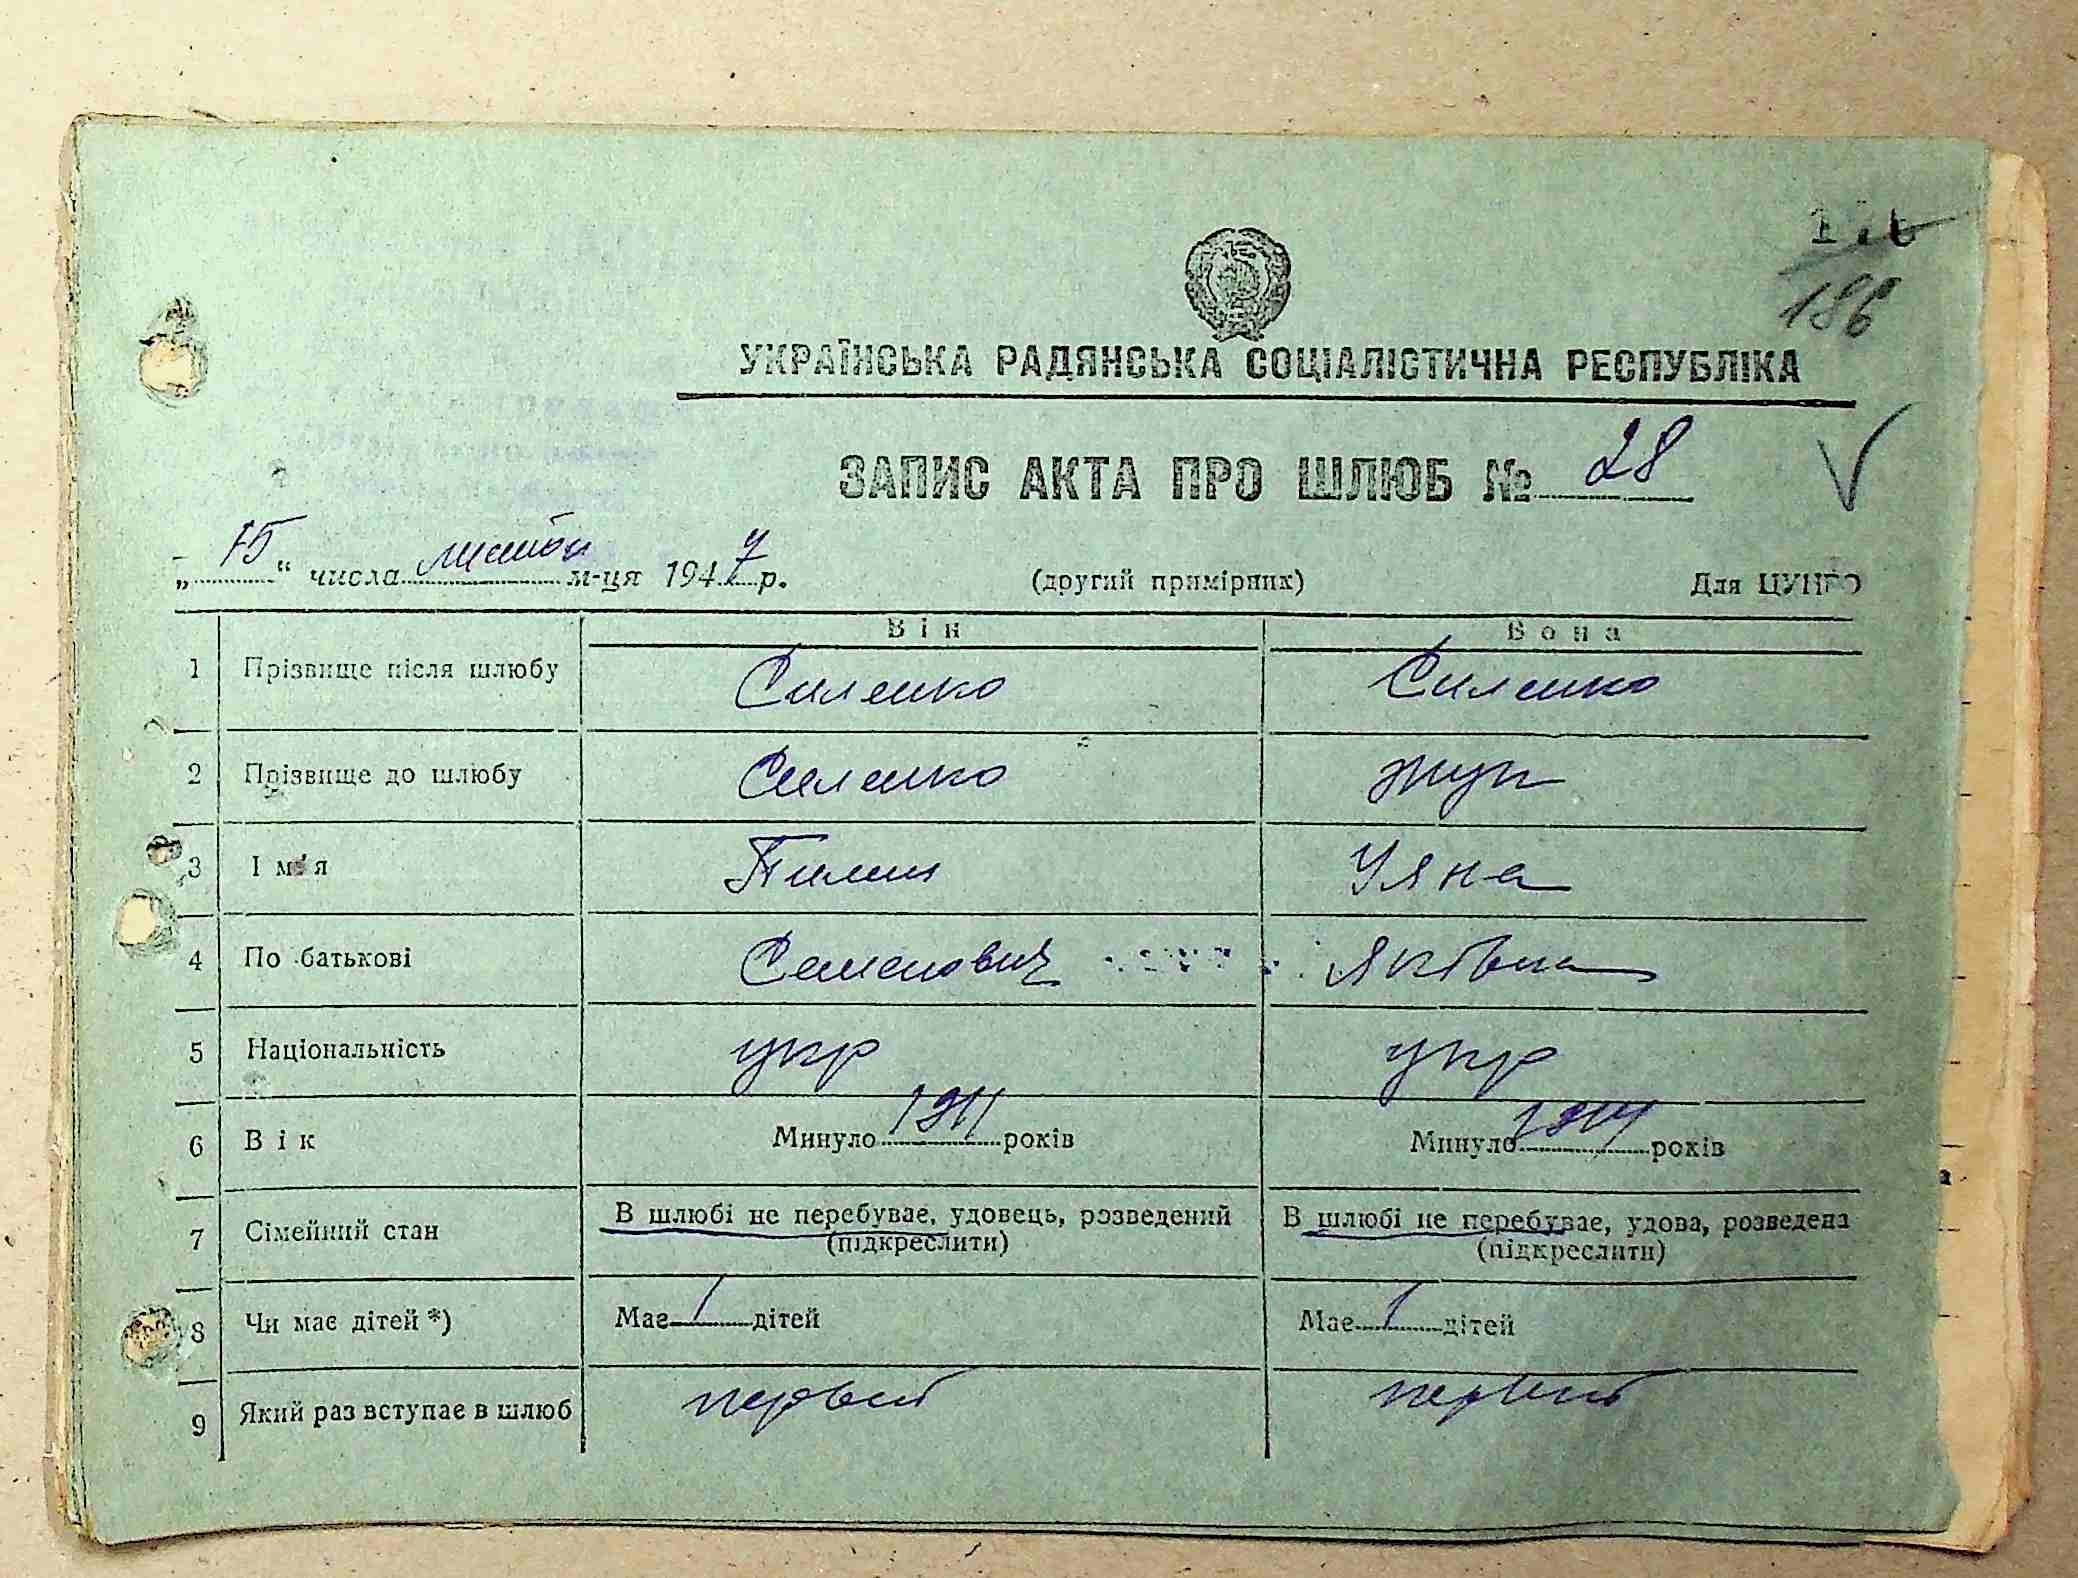 196
УКРАЇНСЬКА РАДЯНСЬКА СОЦІАЛІСТИЧНА РЕСПУБЛІКА
ЗАПИС АКТА ПРО ШЛЮБ № 28
„15“ числа м-ця 1947 р. (другий примірник) Для ЦУНГО
Він Вона
1 Прізвище після шлюбу Силенко Силенко
2 Прізвище до шлюбу Силенко Жук
3 Ім'я Пилип Уляна
4 По батькові Семенович Яківна
5 Національність укр укр
6 Вік Минуло 1911 років Минуло років
7 Сімейний стан В шлюбі не перебуває, удовець, розведений (підкреслити) В шлюбі не перебуває, удова, розведена (підкреслити)
8 Чи має дітей *) Має 1 дітей Має 1 дітей
9 Який раз вступає в шлюб первый первый